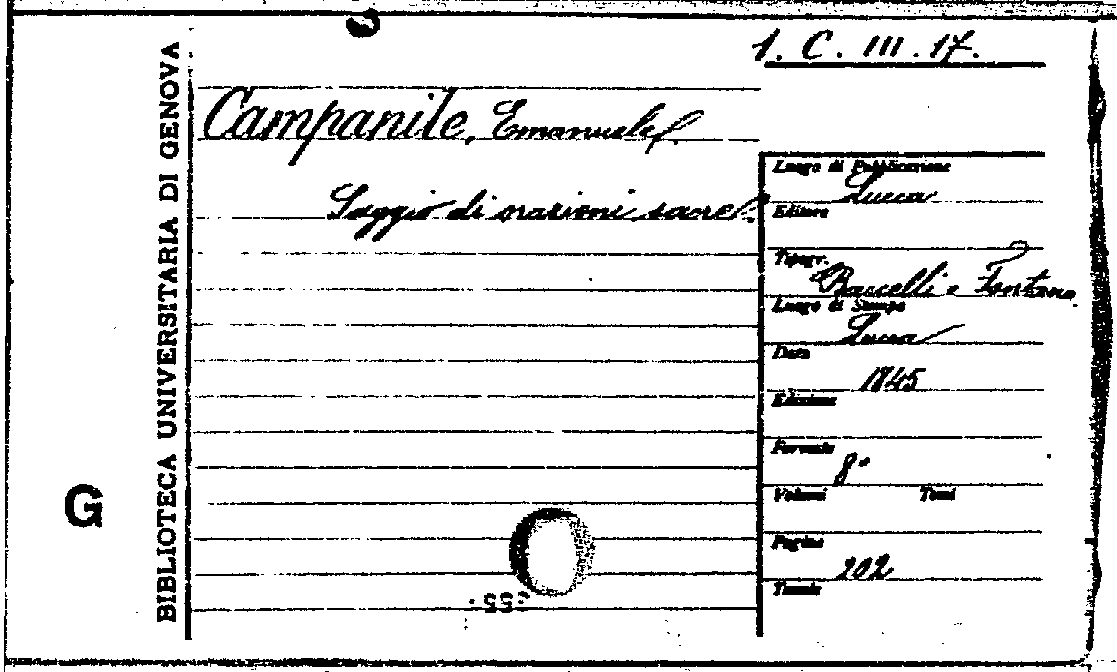 1. C. III. 17.
BIBLIOTECA UNIVERSITARIA DI GENOVA
G
Campanile, Emanuele.
Saggio di orazioni sacre.
Luogo di Pubblicazione
Lucca
Editore
Tipogr.
Baccelli e Fontana
Luogo di Stampa
Lucca
Data
1845
Edizione
Formato
8°
Volumi Tomi
Pagine
202
Tavole